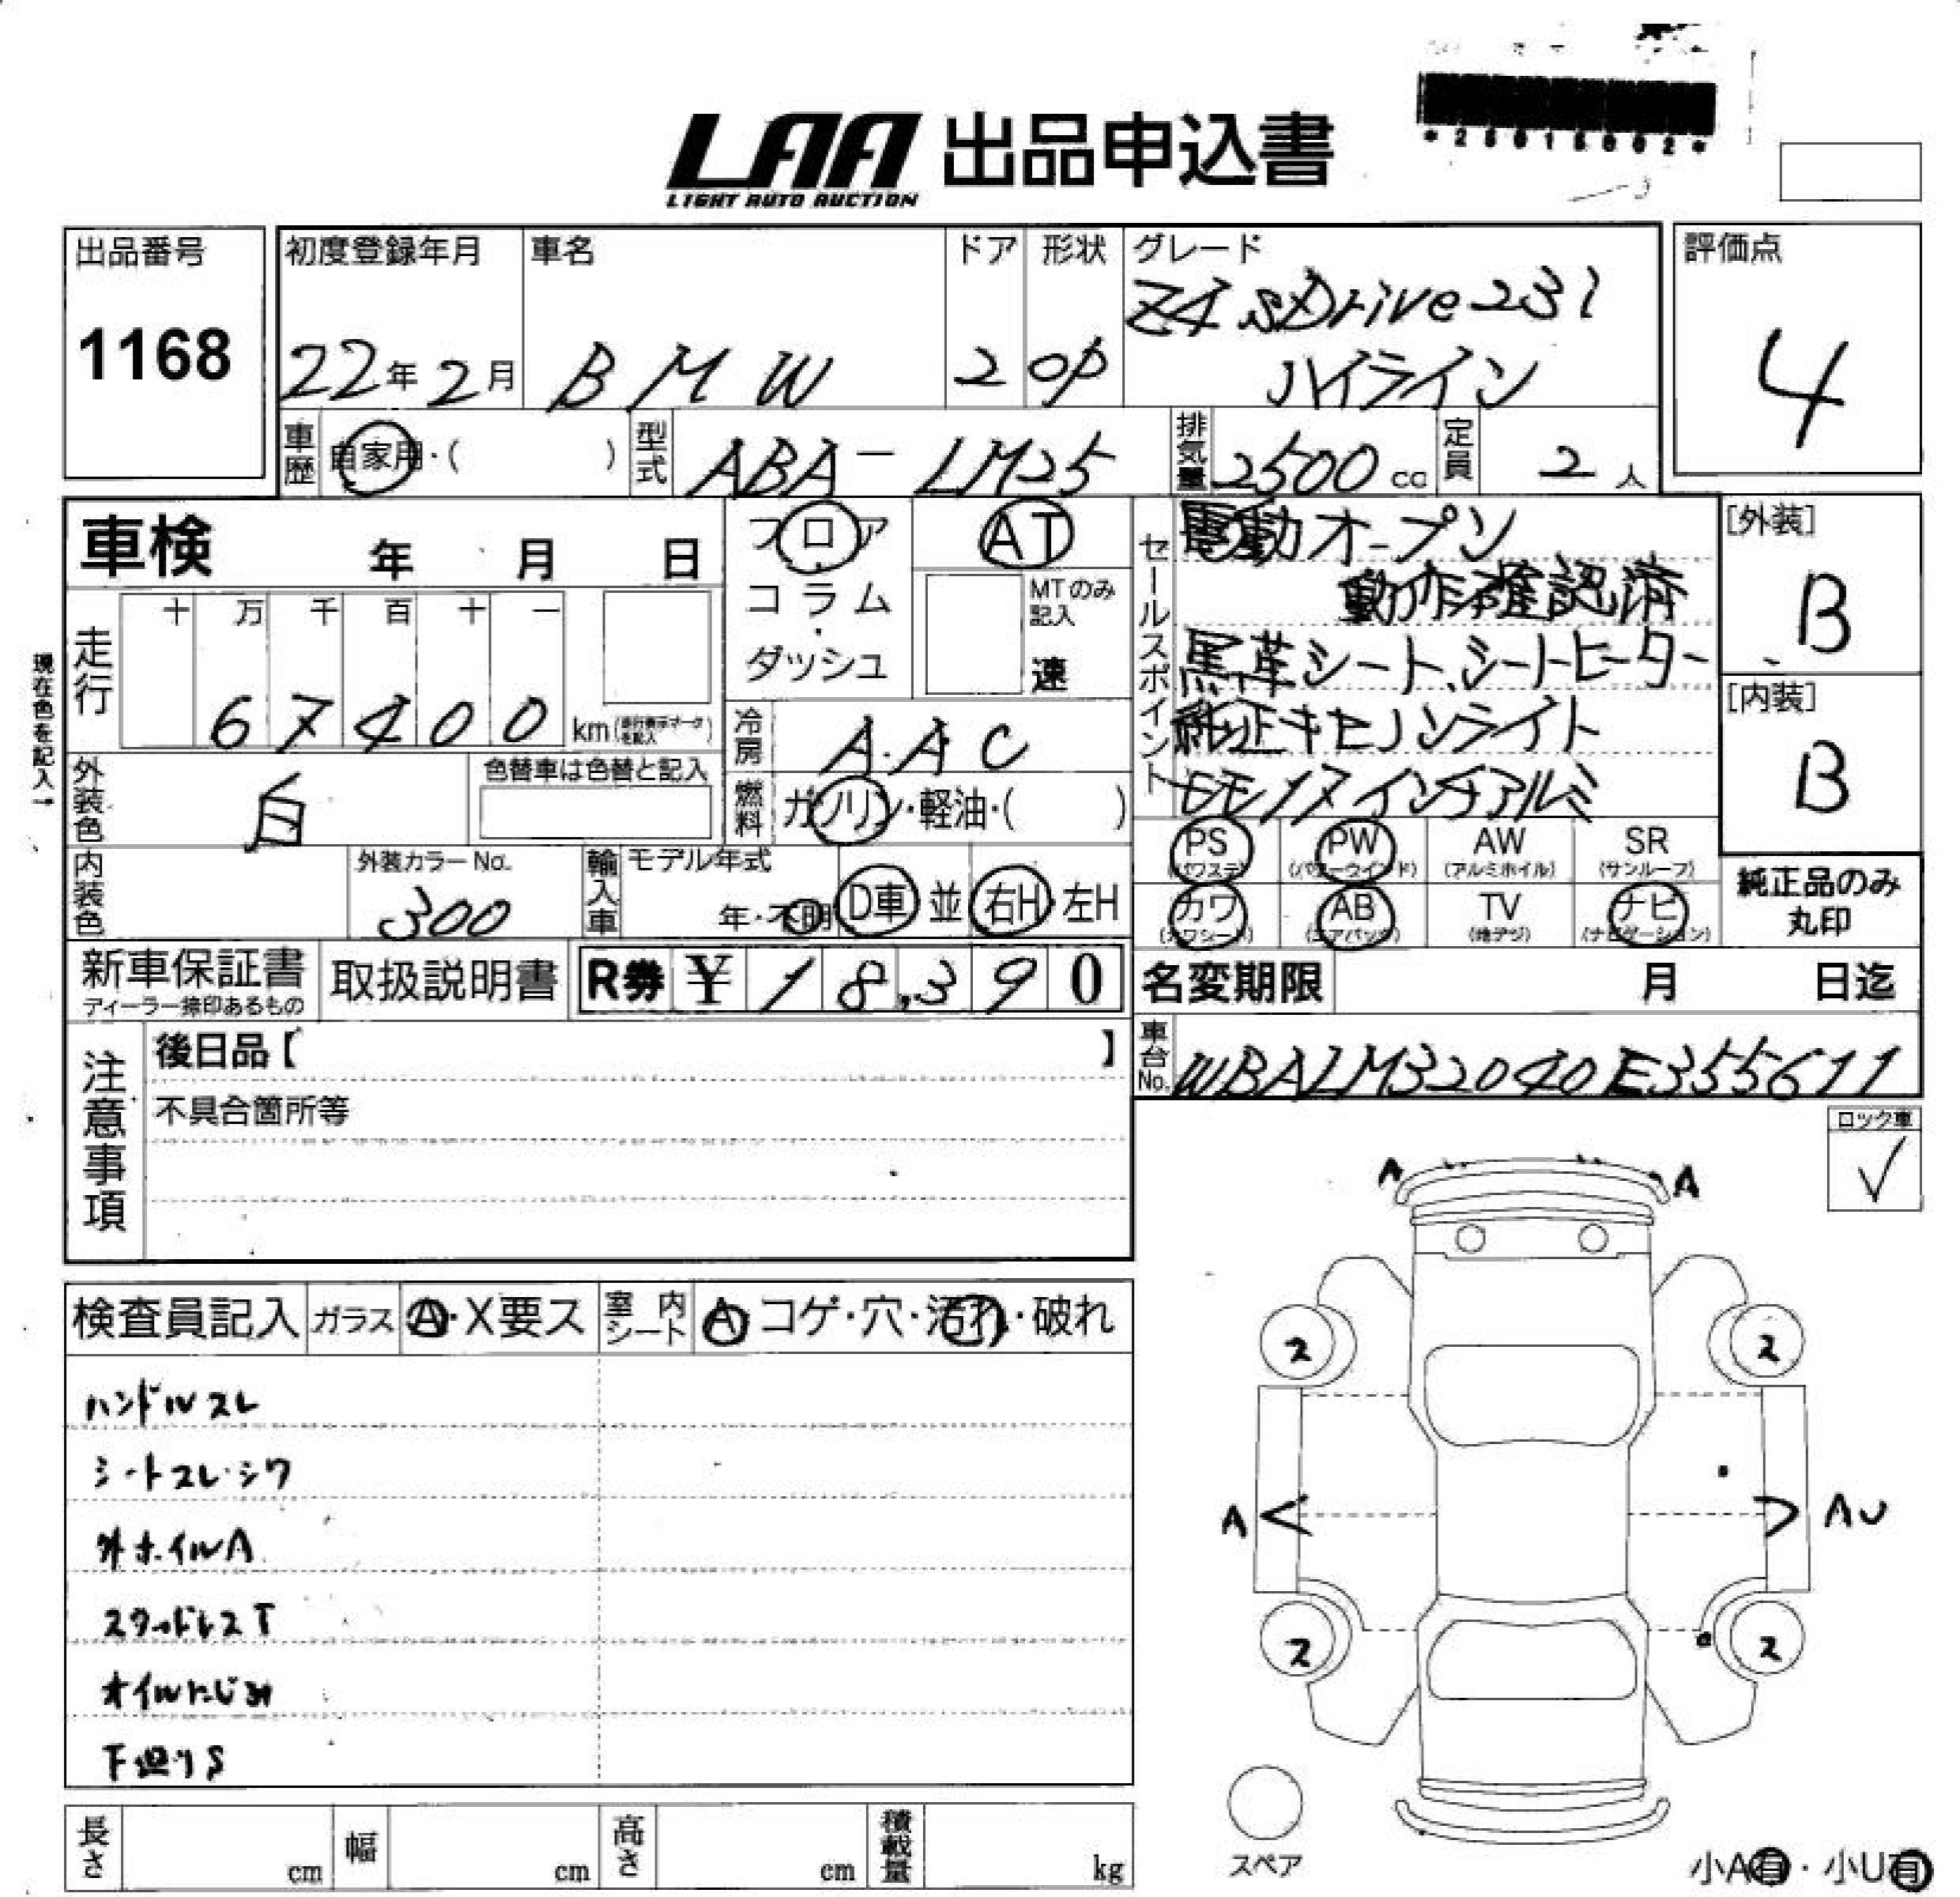 LAA 出品申込書
LIGHT AUTO AUCTION
*25015002*
出品番号
1168
初度登録年月
22年2月
車名
BMW
ドア
2
形状
OP
グレード
Z4 sDrive23i
ハイライン
評価点
4
車歴
自家用・( )
型式
ABA-LM25
排気量
2500cc
定員
2人
車検 年 月 日
フロア
・
コラム
・
ダッシュ
AT
MTのみ
記入
速
セールスポイント
電動オープン
動作確認済
黒革シート、シートヒーター
純正キセノンライト
純正17インチアルミ
[外装]
B
[内装]
B
現在色を記入→
走行
十 万 千 百 十 一
67400
km
冷房
AAC
外装色
白
色替車は色替と記入
燃料
ガソリン・軽油・( )
PS
(パワステ)
PW
(パワーウインド)
AW
(アルミホイル)
SR
(サンルーフ)
カワ
(カワシート)
AB
(エアバッグ)
TV
(地デジ)
ナビ
(ナビゲーション)
純正品のみ
丸印
内装色
外装カラーNo.
300
輸入車
モデル年式
年・不明
D車 並 右H・左H
新車保証書
ディーラー捺印あるもの
取扱説明書
R券 ¥18,390
名変期限 月 日迄
車台No.
WBALM32040E355611
注意事項
後日品【 】
不具合箇所等
ロック車
✓
検査員記入
ガラス
A・X要ス
室内シート
A・コゲ・穴・汚れ・破れ
ハンドルスレ
シートスレ・シワ
外ホイルA
スタッドレスT
オイルにじみ
下廻りS
A A
2 2
A AU
2 2
スペア
小A有・小U有
長さ cm
幅 cm
高さ cm
積載量 kg